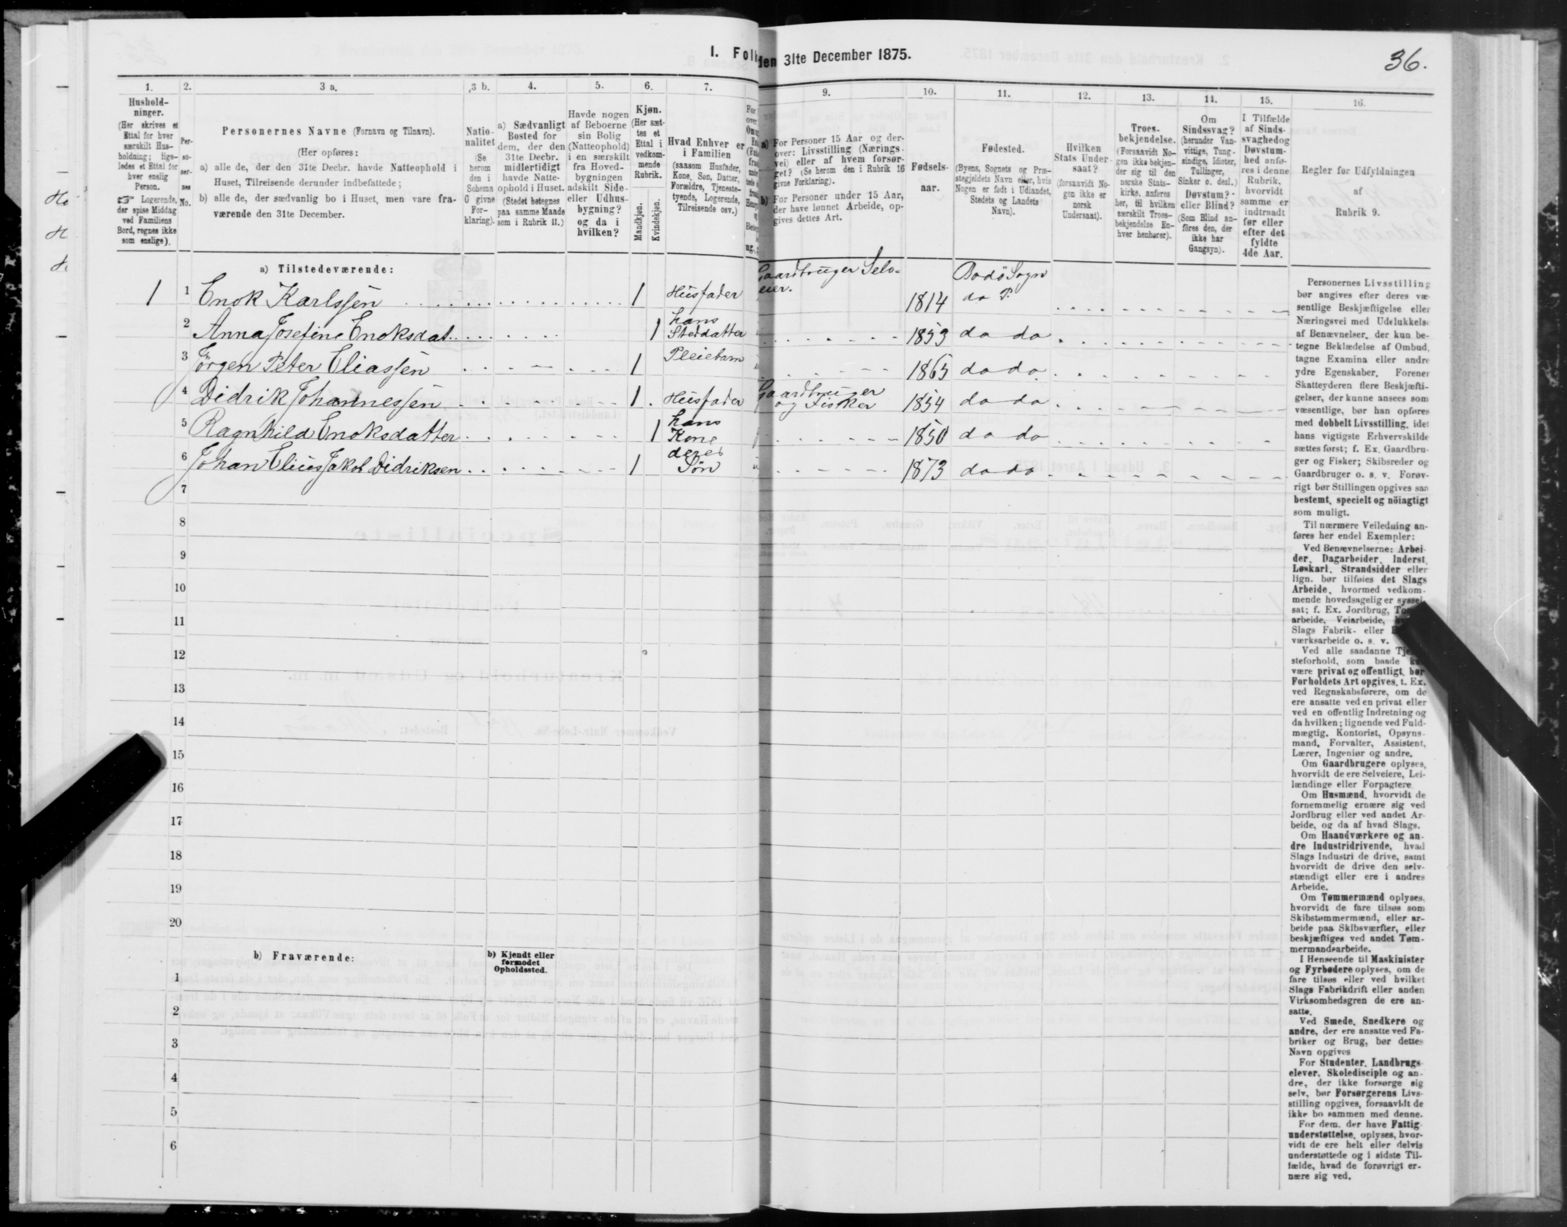 1. Fol den 31te December 1875.
36.
1. 2. 3 a. 3 b. 4. 5. 6. 7. 9. 10. 11. 12. 13. 14. 15. 16.
Hushold-
ninger.
(Her skrives et
Ettal for hver
særskilt Hus-
holdning; lige-
ledes et Ettal for
hver enslig
Person.
Logerende,
der spise Middag
ved Familiens
Bord, regnes ikke
som enslige).
Per-
so-
ner-
nes
No.
Personernes Navne (Fornavn og Tilnavn).
(Her opføres:
a) alle de, der den 31te Decbr. havde Natteophold i
Huset, Tilreisende derunder indbefattede;
b) alle de, der sædvanlig bo i Huset, men vare fra-
værende den 31te December.
Natio-
nalitet
(Se
herom
den i
Schema
6 givne
For-
klaring).
a) Sædvanligt
Bosted for
dem, der den
31te Decbr.
midlertidigt
havde Natte-
ophold i Huset.
(Stedet betegnes
paa samme Maade
som i Rubrik 11.)
Havde nogen
af Beboerne
sin Bolig
(Natteophold)
i en særskilt
fra Hoved-
bygningen
adskilt Side-
eller Udhus-
bygning?
og da i
hvilken?
Kjøn.
(Her sæt-
tes et
Ettal i
vedkom-
mende
Rubrik.
Mandkjøn.
Kvindekjøn.
Hvad Enhver er
i Familien
(saasom Husfader,
Kone, Søn, Datter,
Forældre, Tjeneste-
tyende, Logerende,
Tilreisende osv.)
a) For Personer 15 Aar og der-
over: Livsstilling (Nærings-
vei) eller af hvem forsør-
get? (Se herom den i Rubrik 16
givne Forklaring).
b) For Personer under 15 Aar,
der have lønnet Arbeide, op-
gives dettes Art.
Fødsels-
aar.
Fødested.
(Byens, Sognets og Præ-
stegjeldets Navn eller, hvis
Nogen er født i Udlandet,
Stedets og Landets
Navn).
Hvilken
Stats Under-
saat?
(forsaavidt No-
gen ikke er
norsk
Undersaat).
Troes-
bekjendelse.
(Forsaavidt No-
gen ikke bekjen-
der sig til den
norske Stats-
kirke, anføres
her, til hvilken
særskilt Troes-
bekjendelse En-
hver henhører).
Om
Sindssvag?
(herunder Van-
vittige, Tung-
sindige, Idioter,
Tullinger,
Sinker o. desl.)
Døvstum?
eller Blind?
(Som Blind an-
føres den, der
ikke har
Gangsyn).
I Tilfælde
af Sinds-
svaghedog
Døvstum-
hed anfø-
res i denne
Rubrik,
hvorvidt
samme er
indtraadt
før eller
efter det
fyldte
4de Aar.
Regler for Udfyldningen
af
Rubrik 9.
a) Tilstedeværende:
1 1 Enok Karlssen 1 Husfader Gaardbruger Selv- eier. 1814 Bodø Sogn do P.
2 Anna Josefine Enoksdat. 1 hans Steddatter 1853 do do
3 Jørgen Peter Eliassen 1 Pleiebarn 1865 do do
4 Didrik Johannessen 1 Husfader Gaardbruger og Fisker 1854 do do
5 Ragnhild Enoksdatter 1 hans Kone 1850 do do
6 Johan Elias Jakob Didriksen 1 deres Søn 1873 do do
7
8
9
10
11
12
13
14
15
16
17
18
19
20
b) Fraværende:
b) Kjendt eller
formodet
Opholdssted.
1
2
3
4
5
6
Personernes Livsstilling
bør angives efter deres væ-
sentlige Beskjæftigelse eller
Næringsvei med Udelukkelse
af Benævnelser, der kun be-
tegne Beklædelse af Ombud,
tagne Examina eller andre
ydre Egenskaber. Forener
Skatteyderen flere Beskjæfti-
gelser, der kunne ansees som
væsentlige, bør han opføres
med dobbelt Livsstilling, idet
hans vigtigste Erhvervskilde
sættes først; f. Ex. Gaardbru-
ger og Fisker; Skibsreder og
Gaardbruger o. s. v. Forøv-
rigt bør Stillingen opgives saa
bestemt, specielt og nöiagtigt
som muligt.
Til nærmere Veiledning an-
føres her endel Exempler:
Ved Benævnelserne: Arbei-
der, Dagarbeider, Inderst,
Løskarl, Strandsidder eller
lign. bør tilføies det Slags
Arbeide, hvormed vedkom-
mende hovedsagelig er syssel-
sat; f. Ex. Jordbrug,
arbeide, Veiarbeide,
Slags Fabrik- eller
værksarbeide o. s. v.
Ved alle saadanne
steforhold, som baade
være privat og offentligt, bør
Forholdets Art opgives, t. Ex.
ved Regnskabsførere, om de
ere ansatte ved en privat eller
ved en offentlig Indretning og
da hvilken; lignende ved Fuld-
mægtig, Kontorist, Opsyns-
mand, Forvalter, Assistent,
Lærer, Ingeniør og andre.
Om Gaardbrugere oplyses,
hvorvidt de ere Selveiere, Lei-
lændinge eller Forpagtere
Om Husmænd, hvorvidt de
fornemmelig ernære sig ved
Jordbrug eller ved andet Ar-
beide, og da af hvad Slags.
Om Haandværkere og an-
dre Industridrivende, hvad
Slags Industri de drive, samt
hvorvidt de drive den selv-
stændigt eller ere i andres
Arbeide.
Om Tømmermænd oplyses,
hvorvidt de fare tilsøs som
Skibstømmermænd, eller ar-
beide paa Skibsværfter, eller
beskjæftiges ved andet Tøm-
mermandsarbeide.
I Henseende til Maskinister
og Fyrbødere oplyses, om de
fare tilsøs eller ved hvilket
Slags Fabrikdrift eller anden
Virksomhedsgren de ere an-
satte.
Ved Smede, Snedkere og
andre, der ere ansatte ved Fa-
briker og Brug, bør dettes
Navn opgives
For Studenter, Landbrugs-
elever, Skoledisciple og an-
dre, der ikke forsørge sig
selv, bør Forsørgerens Livs-
stilling opgives, forsaavidt de
ikke bo sammen med denne.
For dem, der have Fattig-
understøttelse, oplyses, hvor-
vidt de ere helt eller delvis
understøttede og i sidste Til-
fælde, hvad de forøvrigt er-
nære sig ved.